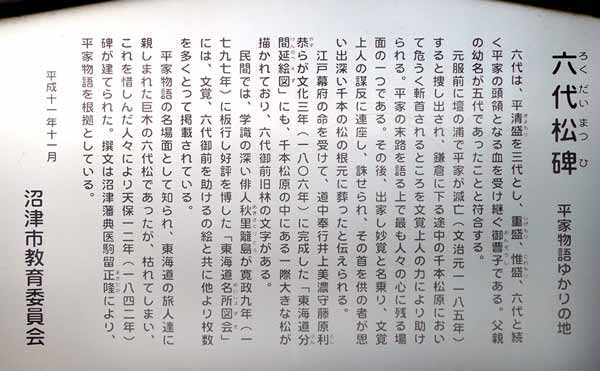 六代松碑
ろくだいまつ ひ
平家物語ゆかりの地
六代は、平清盛を三代とし、重盛、惟盛、六代と続
く平家の頭領となる血を受け継ぐ御曹子である。父親
の幼名が五代であったことと符合する。
元服前に壇の浦で平家が滅亡(文治元一一八五年)
すると捜し出され、鎌倉に下る途中の千本松原におい
て危うく斬首されるところを文覚上人の力により助け
られる。平家の末路を語る上で最も人々の心に残る場
面の一つである。その後、出家し妙覚と名乗り、文覚
上人の謀反に連座し、誅せられ、その首を供の者が思
い出深い千本の松の根元に葬ったと伝えられる。
江戸幕府の命を受けて、道中奉行井上美濃守藤原利
恭らが文化三年(一八〇六年)に完成した「東海道分
間延絵図」にも、千本松原の中にある一際大きな松が
描かれており、六代御前旧林の文字がある。
民間では、学識の深い俳人秋里籬島が寛政九年(一
七九七年)に板行し好評を博した「東海道名所図会」
には、文覚、六代御前を助けるの絵と共に他より枚数
を多くとって掲載されている。
平家物語の名場面として知られ、東海道の旅人達に
親しまれた巨木の六代松であったが、枯れてしまい、
これを惜しんだ人々により天保一二年(一八四二年)
碑が建てられた。撰文は沼津藩典医駒留正隆により、
平家物語を根拠としている。
平成十一年十一月
沼津市教育委員会